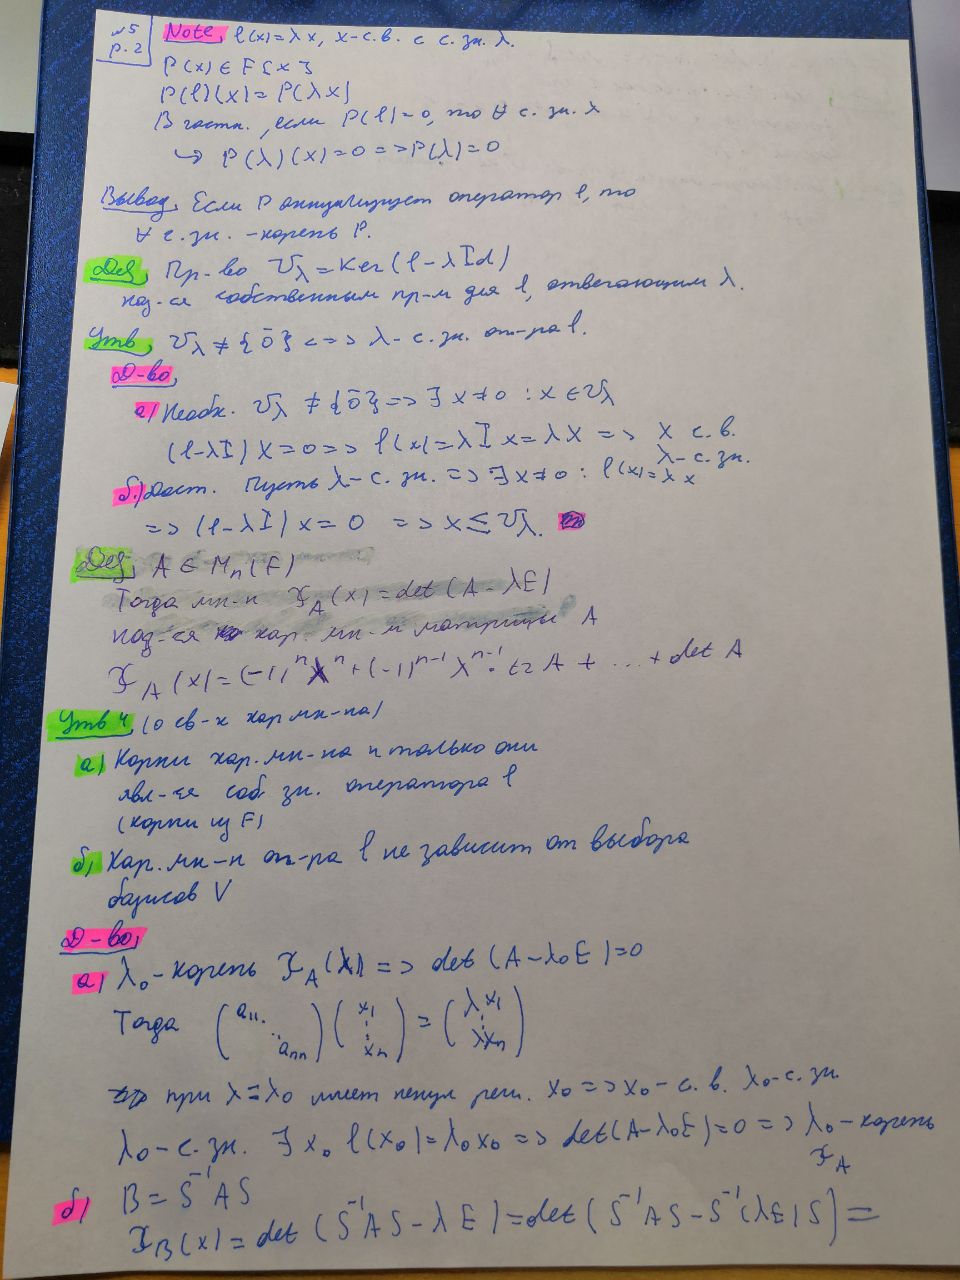 N5
p. 2
Note, l(x)=λx, x-с.в. с с. зн. λ.
P(x) ∈ F{x}
P(l)(x)=P(λx)
В частн., если P(l)=0, то ∀ с. зн. λ
↪ P(λ)(x)=0=>P(λ)=0
Вывод, Если P аннулирует оператор l, то
∀ с. зн. -корень P.
Def, Пр-во V_λ=Ker(l-λId)
наз-ся собственным пр-м для l, отвечающим λ.
Утв, V_λ≠{0̄} <=> λ-с. зн. оп-ра l.
Д-во,
а) Необх. V_λ≠{0̄}=>∃ x≠0 : x∈V_λ
(l-λI)x=0=> l(x)=λIx=λx => x с.в.
λ-с.зн.
б.) Дост. Пусть λ-с. зн. => ∃x≠0 : l(x)=λx
=> (l-λI)x=0 => x ≤ V_λ.
Def, A ∈ M_n(F)
Тогда мн-н X_A(x)=det(A-λE)
наз-ся хар. мн-м матрицы A
X_A(x)=(-1)^n λ^n+(-1)^{n-1} λ^{n-1}· tr A + ... + det A
Утв 4, (о св-х хар мн-на)
а) Корни хар. мн-на и только они
явл-ся соб зн. оператора l
(корни из F)
б) Хар. мн-н оп-ра l не зависит от выбора
базисов V
Д-во,
а) λ₀-корень X_A(λ) => det(A-λ₀E)=0
Тогда (a₁₁. ⋱ .aₙₙ)(x₁ ⋮ xₙ)=(λx₁ ⋮ λxₙ)
при λ=λ₀ имеет ненул реш. x₀=>x₀-с.в. λ₀-с.зн.
λ₀-с.зн. ∃x₀ l(x₀)=λ₀x₀=>det(A-λ₀E)=0=>λ₀-корень
X_A
б) B=S⁻¹AS
X_B(x)=det(S⁻¹AS-λE)=det(S⁻¹AS-S⁻¹(λE)S)=